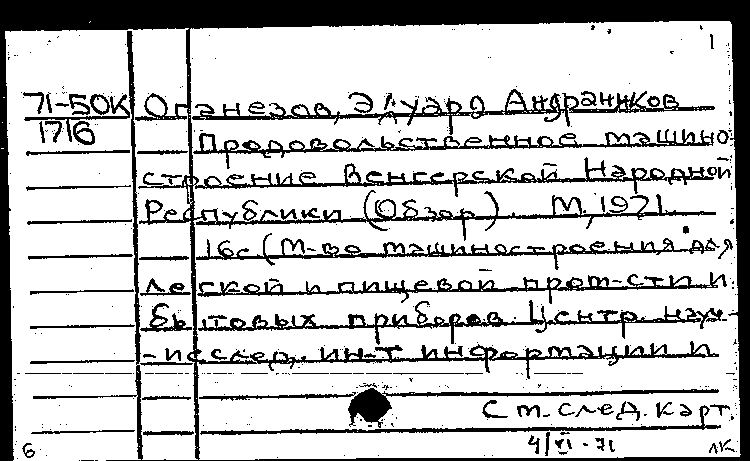 1
71-50К Оганезов, Эдуард Андраникков
1716 Продовольственное машино-
строение Венгерской Народной
Республики (Обзор). М, 1971.
16с (М-во машиностроения для
легской и пищевой пром-сти и
бытовых приборов. Центр. науч-
-исслед. ин-т информации и
См. след. карт.
4/VI-71
6 ЛК